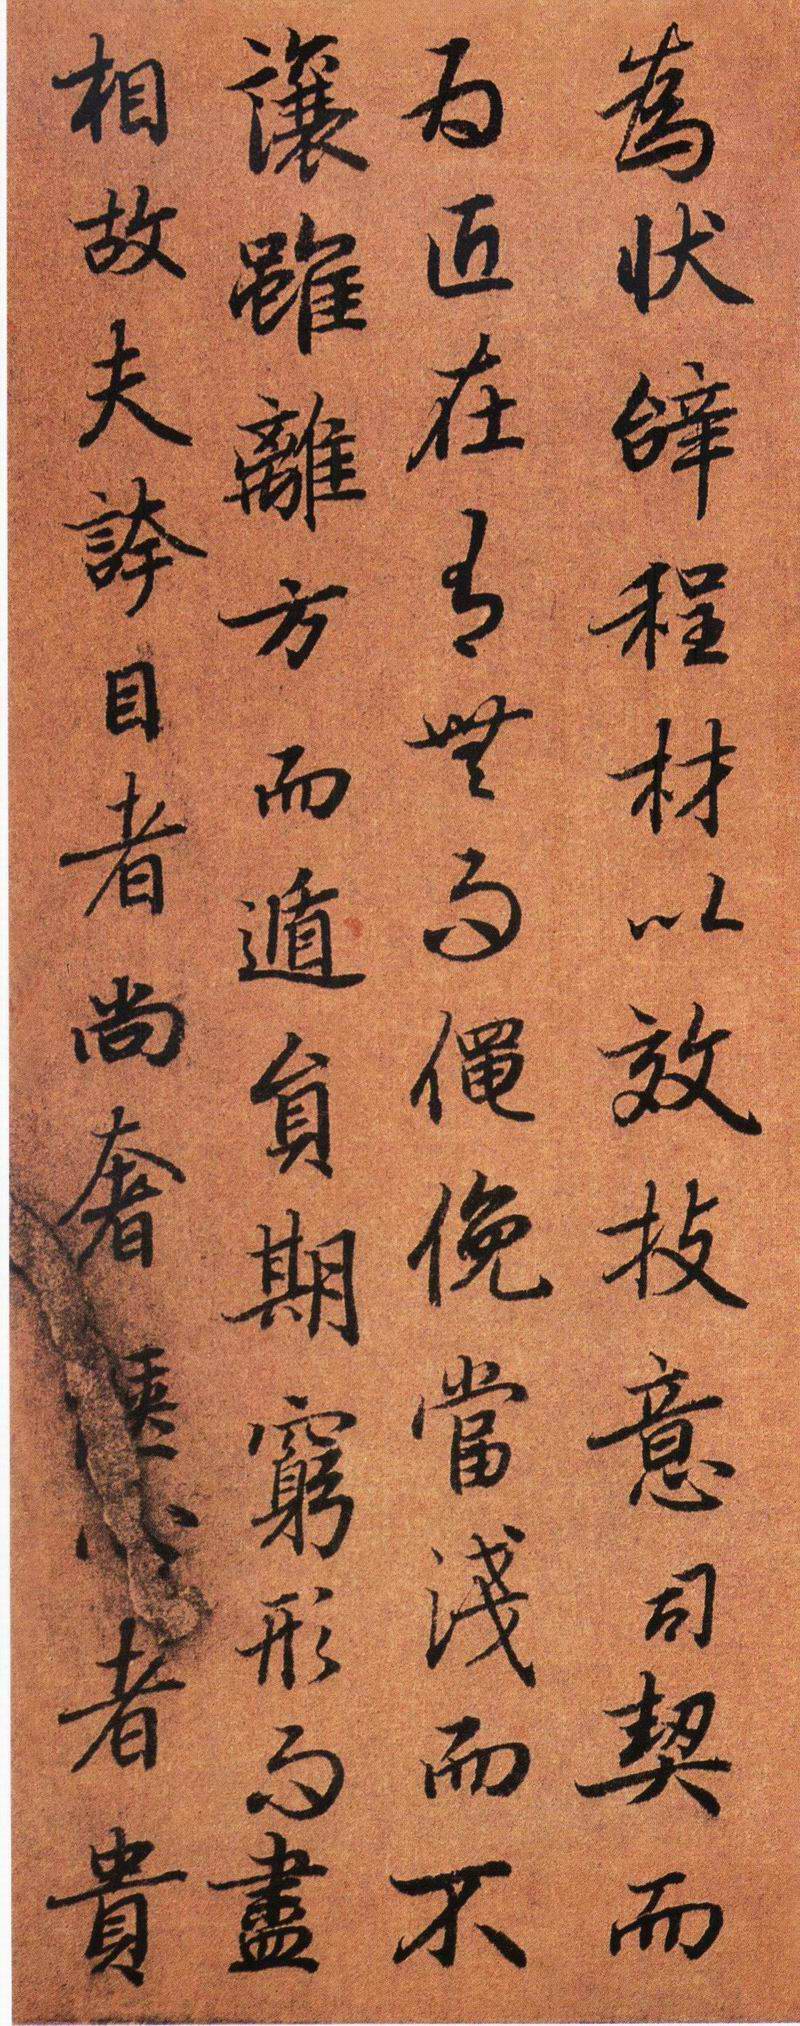 為狀辝程材以效技意司契而
為匠在有無而僶俛當淺而不
讓雖離方而遯員期窮形而盡
相故夫誇目者尚奢愜心者貴